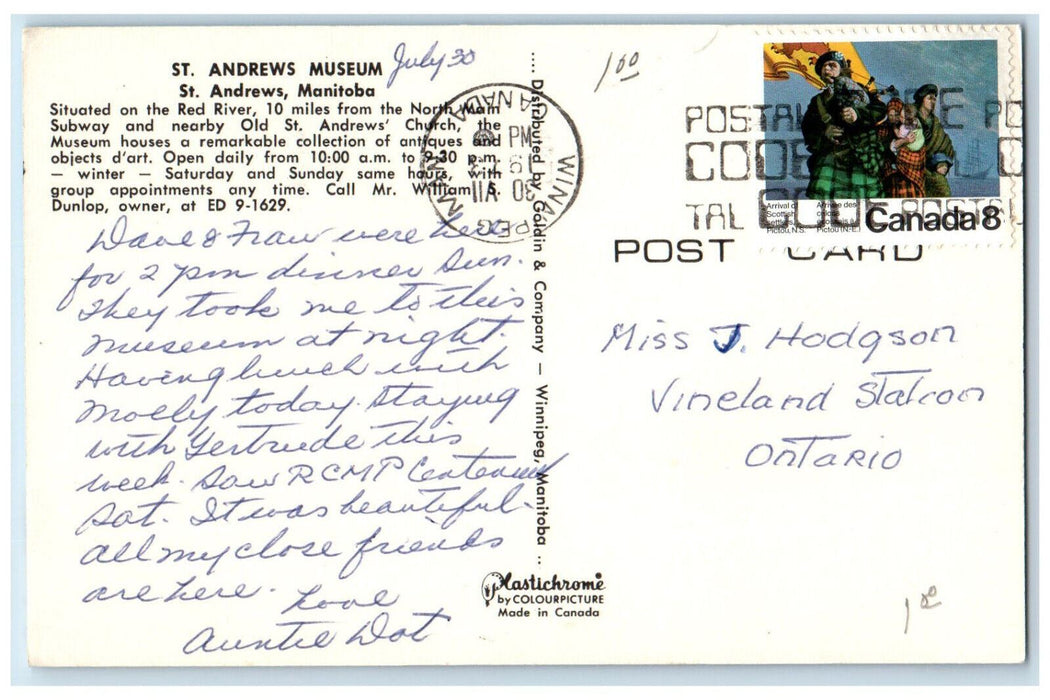 ST. ANDREWS MUSEUM
St. Andrews, Manitoba
Situated on the Red River, 10 miles from the North Main
Subway and nearby Old St. Andrews' Church, the
Museum houses a remarkable collection of antiques and
objects d'art. Open daily from 10:00 a.m. to 9:30 p.m.
— winter — Saturday and Sunday same hours, with
group appointments any time. Call Mr. William S.
Dunlop, owner, at ED 9-1629.
July 30
Dave & Fran were here
for 2 pm dinner Sun.
They took me to this
museum at night.
Having lunch with
Molly today. Staying
with Gertrude this
week. Saw RCMP Centennial
Sat. It was beautiful.
All my close friends
are here. Love
Auntie Dot
.... Distributed by Goldin & Company — Winnipeg, Manitoba ..
Plastichrome
by COLOURPICTURE
Made in Canada
WINNIPEG MAN
CANADA
PM
30 VII
1.00
POSTAL CODE
CODE
TAL CODE POSTAL
Arrival of Scottish settlers, Pictou, N.S.
Arrivée des colons écossais à Pictou (N.-É.)
Canada 8
POST CARD
Miss J. Hodgson
Vineland Station
Ontario
1.00